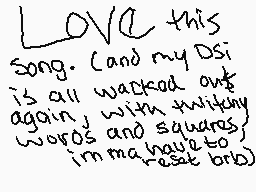 LOVE this
song. (and my DSi
is all wacked out
again, with twitchy
words and squares,
imma have to
reset brb)